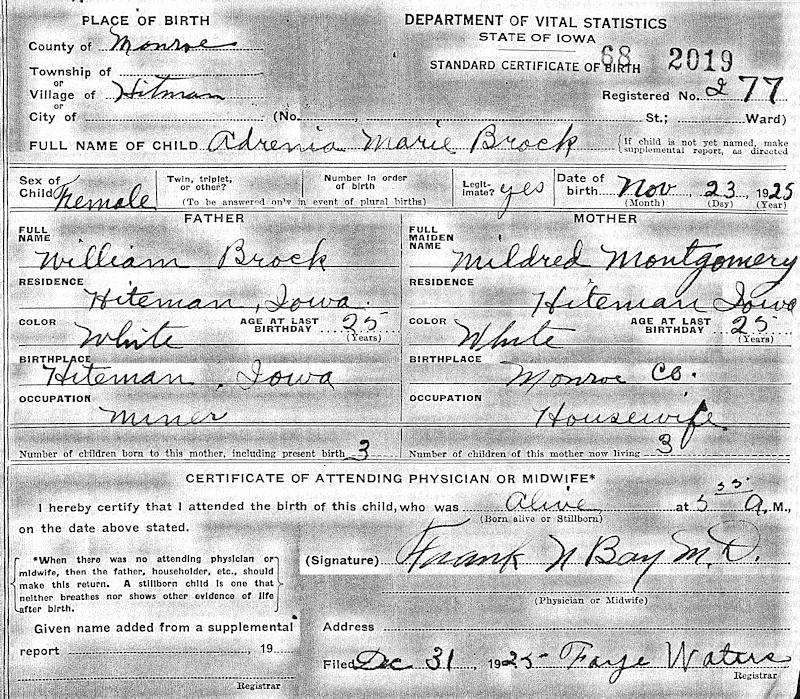 PLACE OF BIRTH
County of Monroe
Township of
or
Village of Hitman
or
City of
DEPARTMENT OF VITAL STATISTICS
STATE OF IOWA
STANDARD CERTIFICATE OF BIRTH 68 2019
Registered No. 277
(No. St.; Ward)
FULL NAME OF CHILD Adrenia Marie Brock
{If child is not yet named, make
supplemental report, as directed
Sex of Child Female
Twin, triplet, or other?
Number in order of birth
(To be answered only in event of plural births)
Legit-imate? yes
Date of birth Nov 23, 1925
(Month) (Day) (Year)
FATHER
FULL NAME William Brock
RESIDENCE Hiteman, Iowa.
COLOR White AGE AT LAST BIRTHDAY 25 (Years)
BIRTHPLACE Hiteman, Iowa
OCCUPATION Miner
MOTHER
FULL MAIDEN NAME Mildred Montgomery
RESIDENCE Hiteman Iowa
COLOR White AGE AT LAST BIRTHDAY 25 (Years)
BIRTHPLACE Monroe Co.
OCCUPATION Housewife
Number of children born to this mother, including present birth 3
Number of children of this mother now living 3
CERTIFICATE OF ATTENDING PHYSICIAN OR MIDWIFE*
I hereby certify that I attended the birth of this child, who was Alive at 5 55 A. M.,
(Born alive or Stillborn)
on the date above stated.
*When there was no attending physician or
midwife, then the father, householder, etc., should
make this return. A stillborn child is one that
neither breathes nor shows other evidence of life
after birth.
(Signature) Frank N Bay M.D.
(Physician or Midwife)
Given name added from a supplemental
report , 19
Registrar
Address
Filed Dec 31, 1925 Faye Waters
Registrar